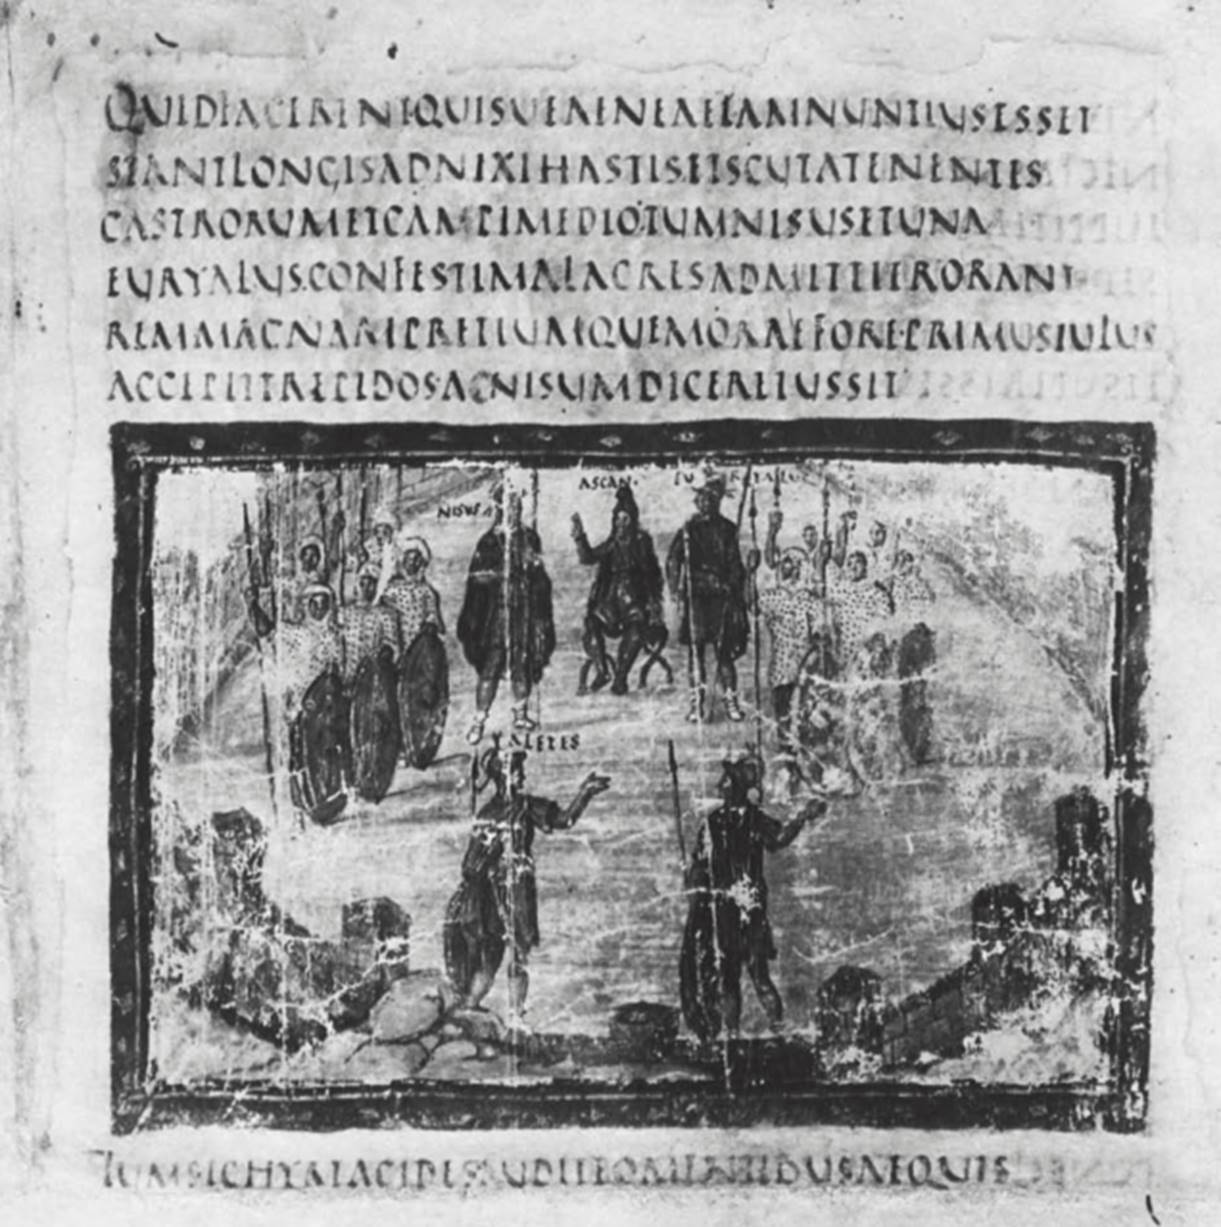 QUIDFACERENTQUISUEAENEAEIAMNUNTIUSESSET
STANTLONGISADNIXIHASTISETSCUTATENENTES
CASTRORUMETCAMPIMEDIO·TUMNISUSETUNA
EURYALUS·CONFESTIMALACRESADMITTIERORANT
REMMAGNAMPRETIUMQUEMORAEFORE·PRIMUSIULUS
ACCEPITTREPIDOS·ACNISUMDICEREIUSSIT
ASCAN·
EURYALUS
NISUS
ALETES
TUMSICHYRTACIDES·AUDITEOMENTIBUSAEQUIS